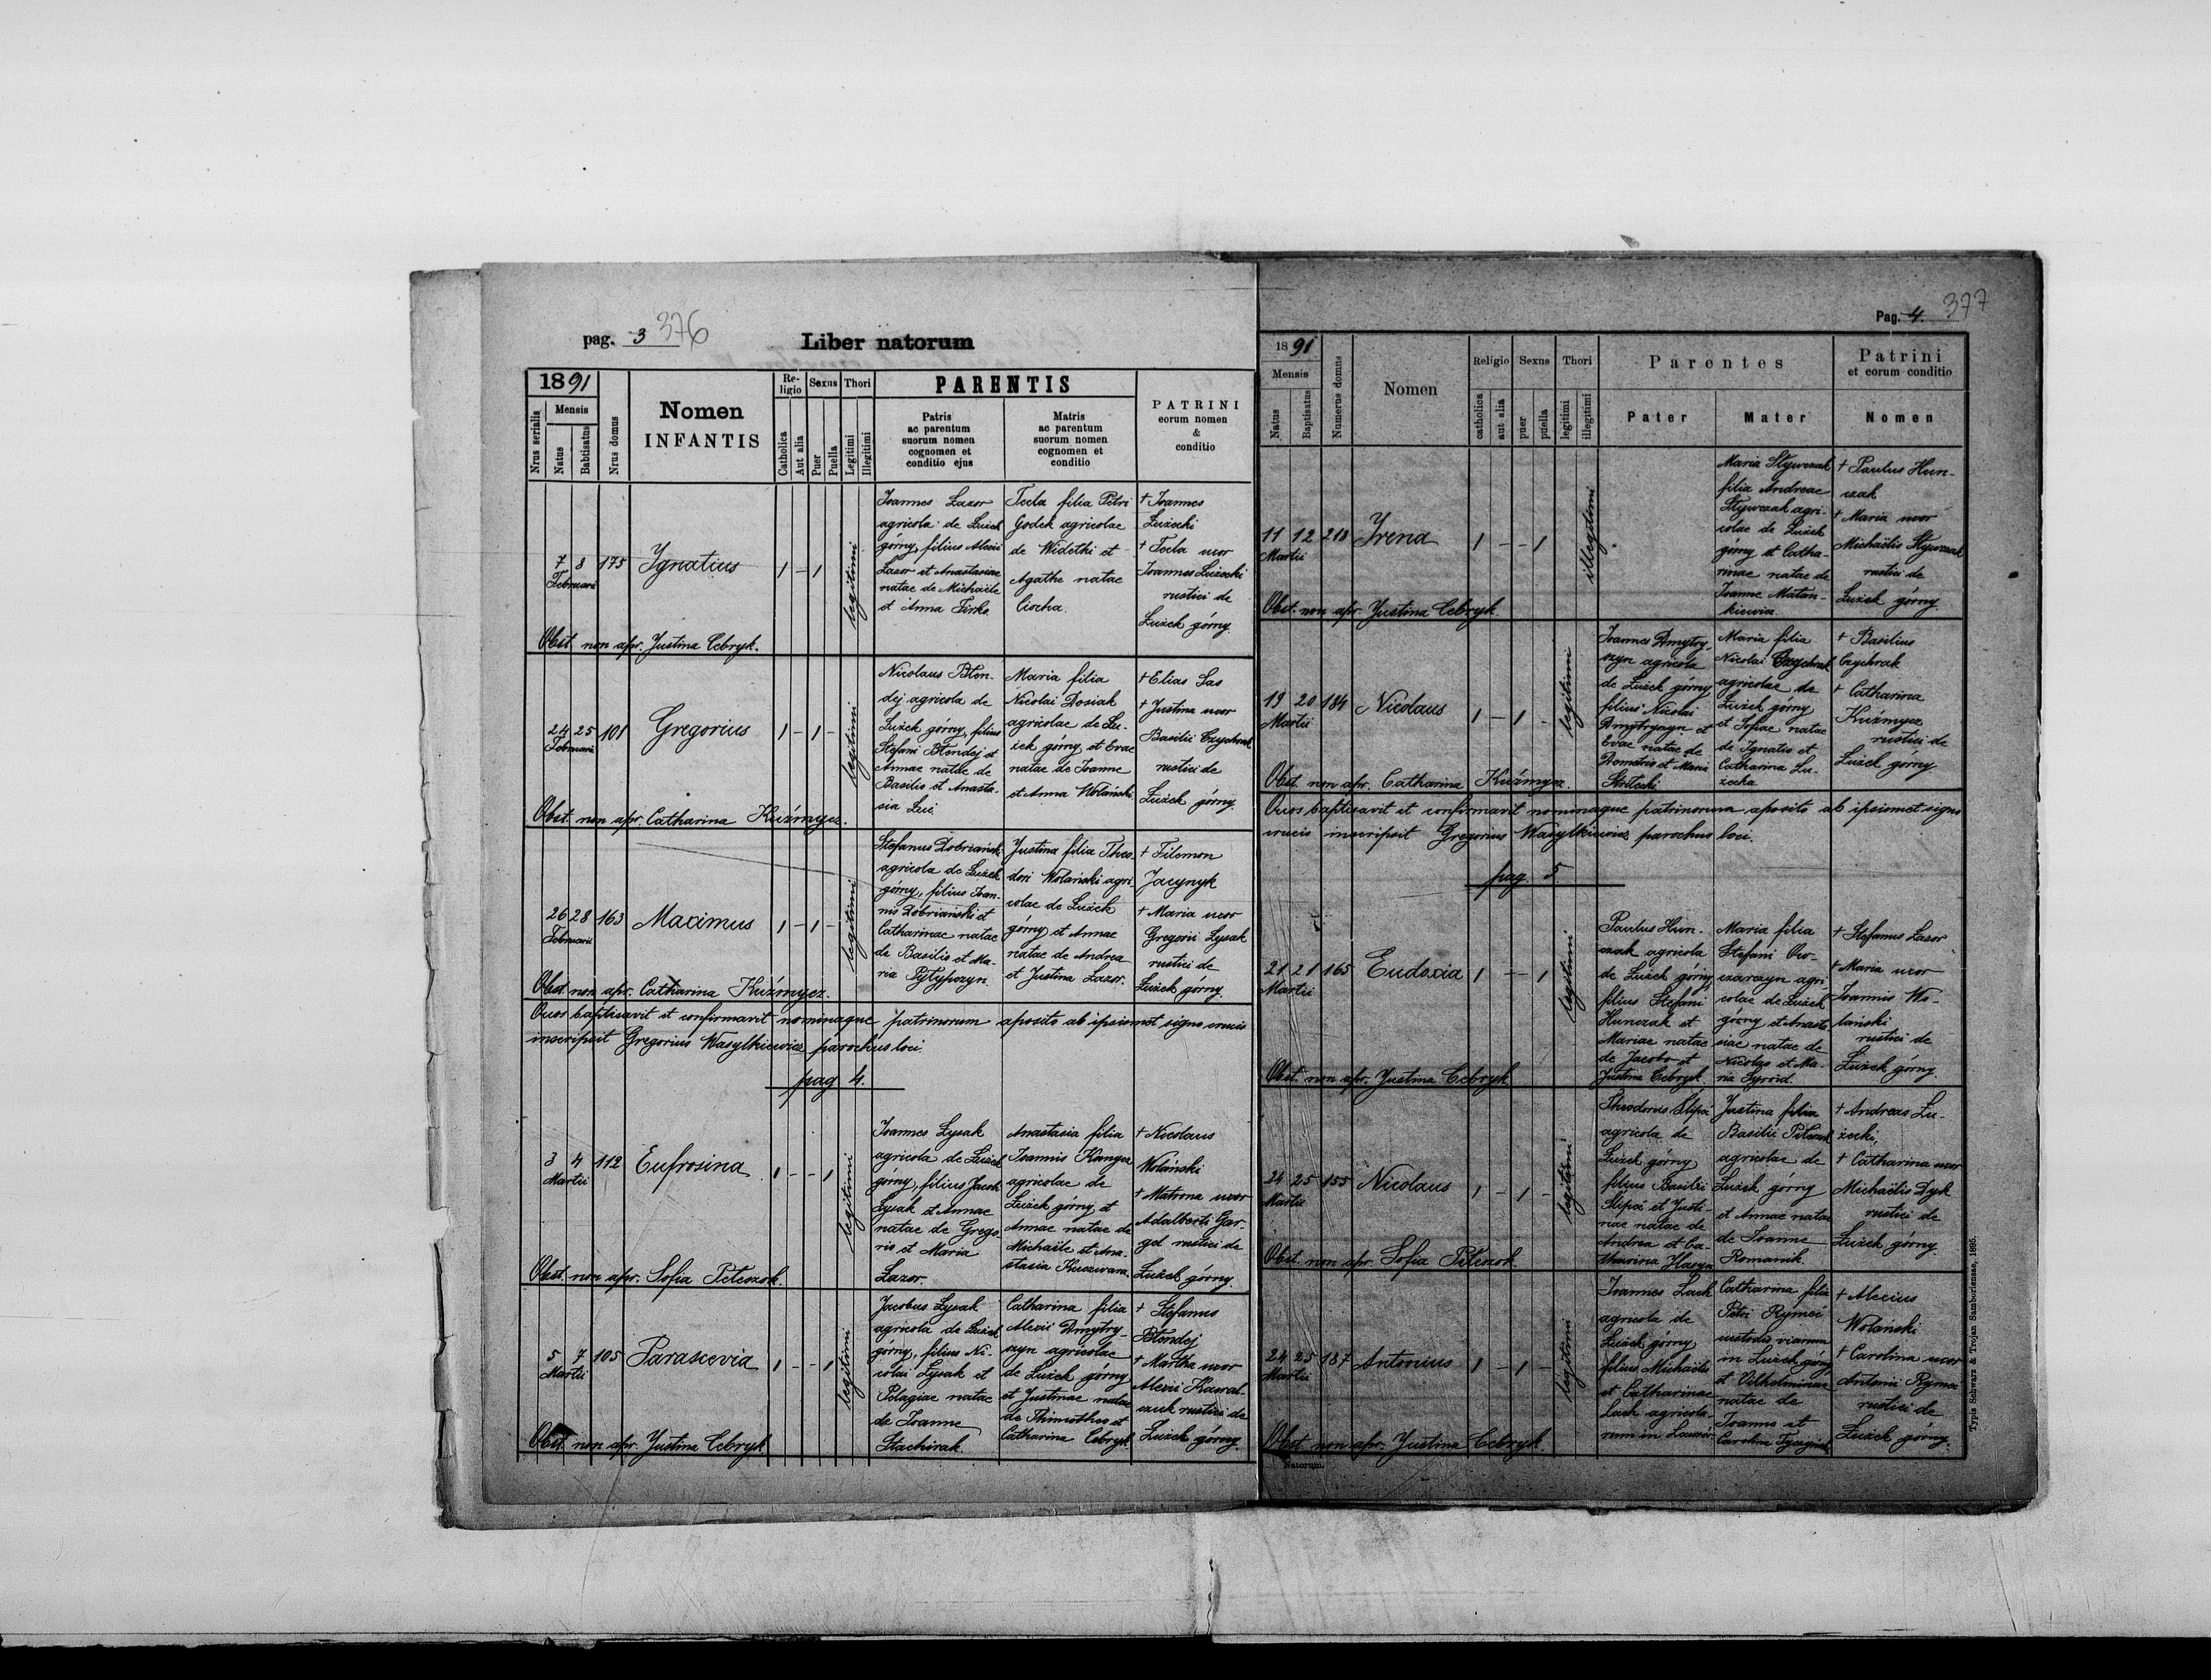 pag. 3 376
Liber natorum
1891
Nrus serialis
Mensis
Natus
Babtisatus
Nrus domus
Nomen
INFANTIS
Re-
ligio
Catholica
Aut alia
Sexus
Puer
Puella
Thori
Legitimi
Illegitimi
PARENTIS
Patris
ac parentum
suorum nomen
cognomen et
conditio ejus
Matris
ac parentum
suorum nomen
cognomen et
conditio
PATRINI
eorum nomen
&
conditio
7 8 175
Februarii
Ignatius
1 - 1
legitimi
Joannes Łazor
agricola de Łużek
górny, filius Alexii
Łazor et Anastasiae
natae de Michaële
et Anna Firko
Tecla filia Petri
Godek agricolae
de Widełki et
Agathe natae
Ciocha.
† Joannes
Łużecki
† Tecla uxor
Joannes Łużecki
rustici de
Łużek górny.
Obst. non apr. Justina Cebryk.
24 25 101
Februarii
Gregorius
1 - 1 -
legitimi
Nicolaus Błon-
dej agricola de
Łużek górny, filius
Stefani Błondej et
Annae natae de
Basilio et Anasta-
sia
Maria filia
Nicolai Dosiak
agricolae de Łu-
żek górny et Evae
natae de Joanne
et Anna Wolański
† Elias Sas
† Justina uxor
Basilii Czychrak
rustici de
Łużek górny.
Obst. non apr. Catharina Kuźmycz.
26 28 163
Februarii
Maximus
1 - 1 -
legitimi
Stefanus Dobriański
agricola de Łużek
górny, filius Joan-
nis Dobriański et
Catharinae natae
de Basilio et Ma-
ria Pytypczyn.
Justina filia Theo
dori Wolański agri
colae de Łużek
górny et Annae
natae de Andrea
et Justina Łazor.
† Filemon
Jacynyk
† Maria uxor
Gregorii Łysak
rustici de
Łużek górny.
Obst. non apr. Catharina Kuźmycz.
Quos baptisavit et confirmavit nominaque patrinorum aposito ab ipsismet signo crucis
inscripsit Gregorius Wasylkiewicz parochus loci.
pag 4.
3 4 112
Martii
Eufrosina
1 - - 1
legitimi
Joannes Łysak
agricola de Łużek
górny, filius Jacobi
Łysak et Annae
natae de Grego-
rio et Maria
Łazor.
Anastasia filia
Joannis
agricolae de
Łużek górny et
Annae natae de
Michaële et Ana-
stasia Kuczwara.
† Nicolaus
Wolański
† Matrona uxor
Adalberti Gar-
gol rustici de
Łużek górny.
Obst. non apr. Sofia Petczok.
5 7 105
Martii
Parascevia
1 - - 1
legitimi
Jacobus Łysak
agricola de Łużek
górny, filius Ni-
colai Łysak et
Pelagiae natae
de Joanne
Stachirak.
Catharina filia
Alexii Dmytry-
szyn agricolae
de Łużek górny
et Justinae natae
de Thimotheo et
Catharina Cebryk
† Stefanus
Błondej
† Martha uxor
Alexii Kawal-
czuk rustici de
Łużek górny.
Obst. non apr. Justina Cebryk
Pag. 4. 377
1891
Mensis
Natus
Baptisatus
Numerus domus
Nomen
Religio
catholica
aut alia
Sexus
puer
puella
Thori
legitimi
illegitimi
Parentes
Pater
Mater
Patrini
et eorum conditio
Nomen
11 12 218
Martii
Irena
1 - - 1
illegitimi
Maria Styweczak
filia Andreae
Styweczak agri-
colae de Łużek
górny et Catha-
rinae natae de
Joanne Matan-
kiewicz.
† Paulus Hun-
czak
† Maria uxor
Michaëlis Styweczak
rustici de
Łużek górny.
Obst. non apr. Justina Cebryk.
19 20 184
Martii
Nicolaus
1 - 1 -
legitimi
Joannes Dmytry-
szyn agricola
de Łużek górny
filius Nicolai
Dmytryszyn et
Evae natae de
Demetrio et Maria
Maria filia
Nicolai Czychrak
agricolae de
Łużek górny
et Sofiae natae
de Ignatio et
Catharina Łu-
żecka.
† Basilius
Czychrak
† Catharina
Kuźmycz
rustici de
Łużek górny
Obst. non apr. Catharina Kuźmycz.
Quos baptisavit et confirmavit nominaque patrinorum aposito ab ipsismet signo
crucis inscripsit Gregorius Wasylkiewicz parochus loci.
pag. 5.
21 21 165
Martii
Eudoxia
1 - - 1
legitimi
Paulus Hun-
czak agricola
de Łużek górny,
filius Stefani
Hunczak et
Mariae natae
de Jacobo et
Justina Cebryk.
Maria filia
Stefani Ow-
czarczyn agri-
colae de Łużek
górny et Anasta
siae natae de
Nicolao et Ma-
ria Syroid.
† Stefanus Łazor
† Maria uxor
Joannis Wo-
lański
rustici de
Łużek górny.
Obst. non apr. Justina Cebryk
24 25 155
Martii
Nicolaus
1 - 1 -
legitimi
Theodorus Slipci
agricola de
Łużek górny
filius Basilii
Slipci et Justi-
nae natae de
Andrea et Ca-
tharina
Justina filia
Basilii Petczok
agricolae de
Łużek górny
et Annae natae
de Joanne
Romanik.
† Andreas Łu-
żecki,
† Catharina uxor
Michaëlis Dyk
rustici de
Łużek górny.
Obst. non apr. Sofia Petczok.
24 25 187
Martii
Antonius
1 - 1 -
legitimi
Joannes Lach
agricola de
Łużek górny
filius Michaëlis
et Catharinae
Lach agricola-
rum in
Catharina filia
Petri
custodis viarum
in Łużek górny
et Vilhelminae
natae de
Joanne et
Carolina
† Alexius
Wolański
† Carolina uxor
Antonii
rustici de
Łużek górny.
Obst. non apr. Justina Cebryk.
Natorum.
Typis Schwarz & Trojan Samboriensae, 1895.